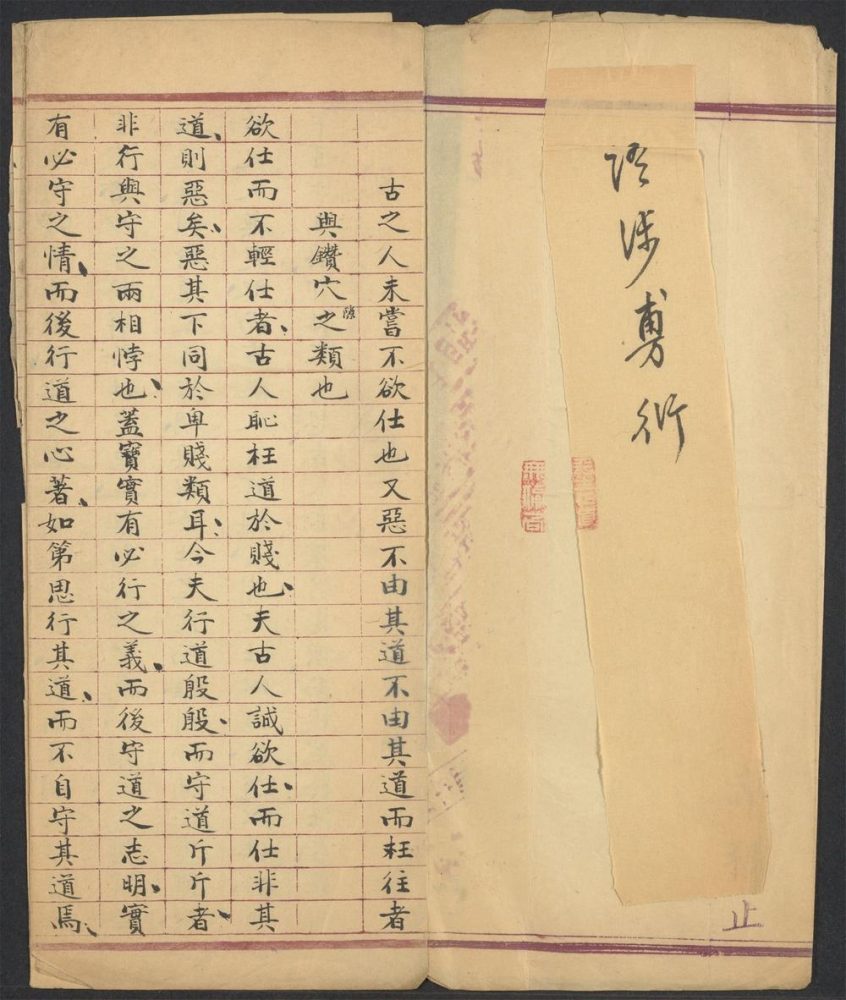 語涉旉衍
止
古之人未嘗不欲仕也又惡不由其道不由其道而枉往者
與鑽穴之隙類也
欲仕而不輕仕者、古人恥枉道於賤也、夫古人誠欲仕、而仕非其
道、則惡矣、惡其下同於卑賤類耳、今夫行道殷殷、而守道斤斤者、
非行與守之兩相悖也、蓋寶實有必行之義、而後守道之志明、實
有必守之情、而後行道之心著、如第思行其道、而不自守其道焉、